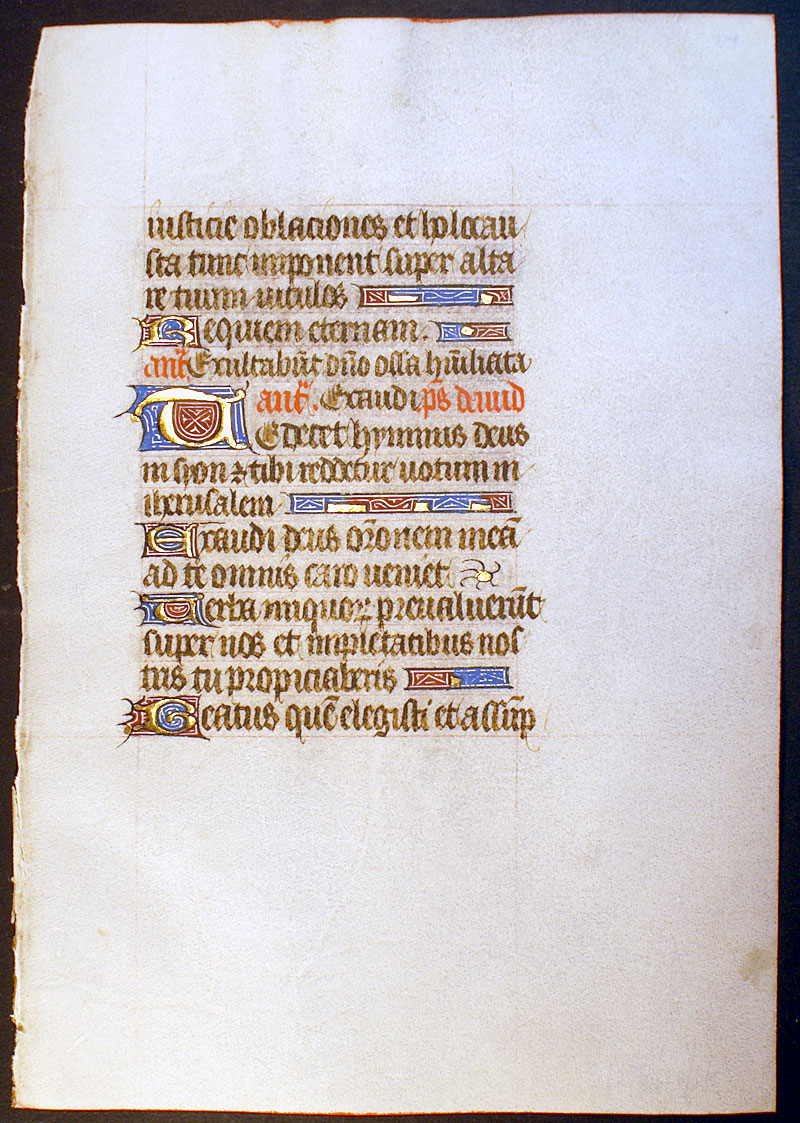 iusticie oblaciones et holocau
sta tunc imponent super alta
re tuum uitulos
Requiem eternam.
ant̃. Exultabũt dño ossa hũiliata
ant̃. Exaudi p̃s dauid
Te decet hymnus deus
in syon ⁊ tibi reddetur uotum in
iherusalem
Exaudi deus or̃onem meã
ad te omnis caro ueniet
Uerba iniquoꝝ preualuerũt
super nos et impietatibus nos
tris tu propiciaberis
Beatus quẽ elegisti et assũp